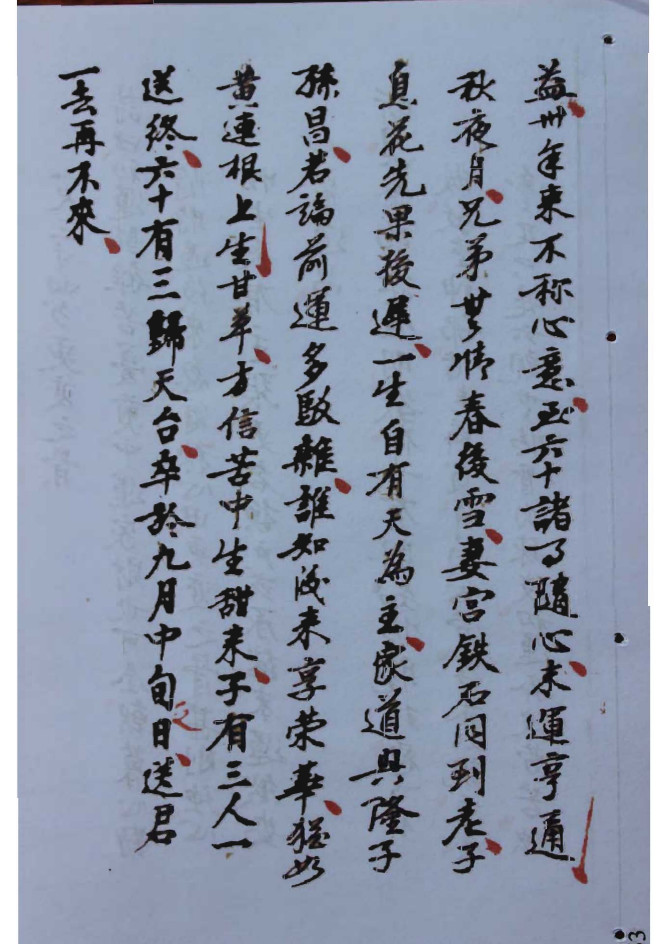 益卅年来不称心意、五六十諸了隨心、末運亨通
秋夜月、兄弟世情春後雪、妻宮鉄石同到老、子
息花先果後遲、一生自有天為主、家道興隆子
孫昌、若論前運多駁雜、誰知後来享荣華、猶如
黄連根上生甘草、方信苦中生甜来、子有三人一
送終、六十有三歸天台、卒於九月中旬日、送君
一去再不來、